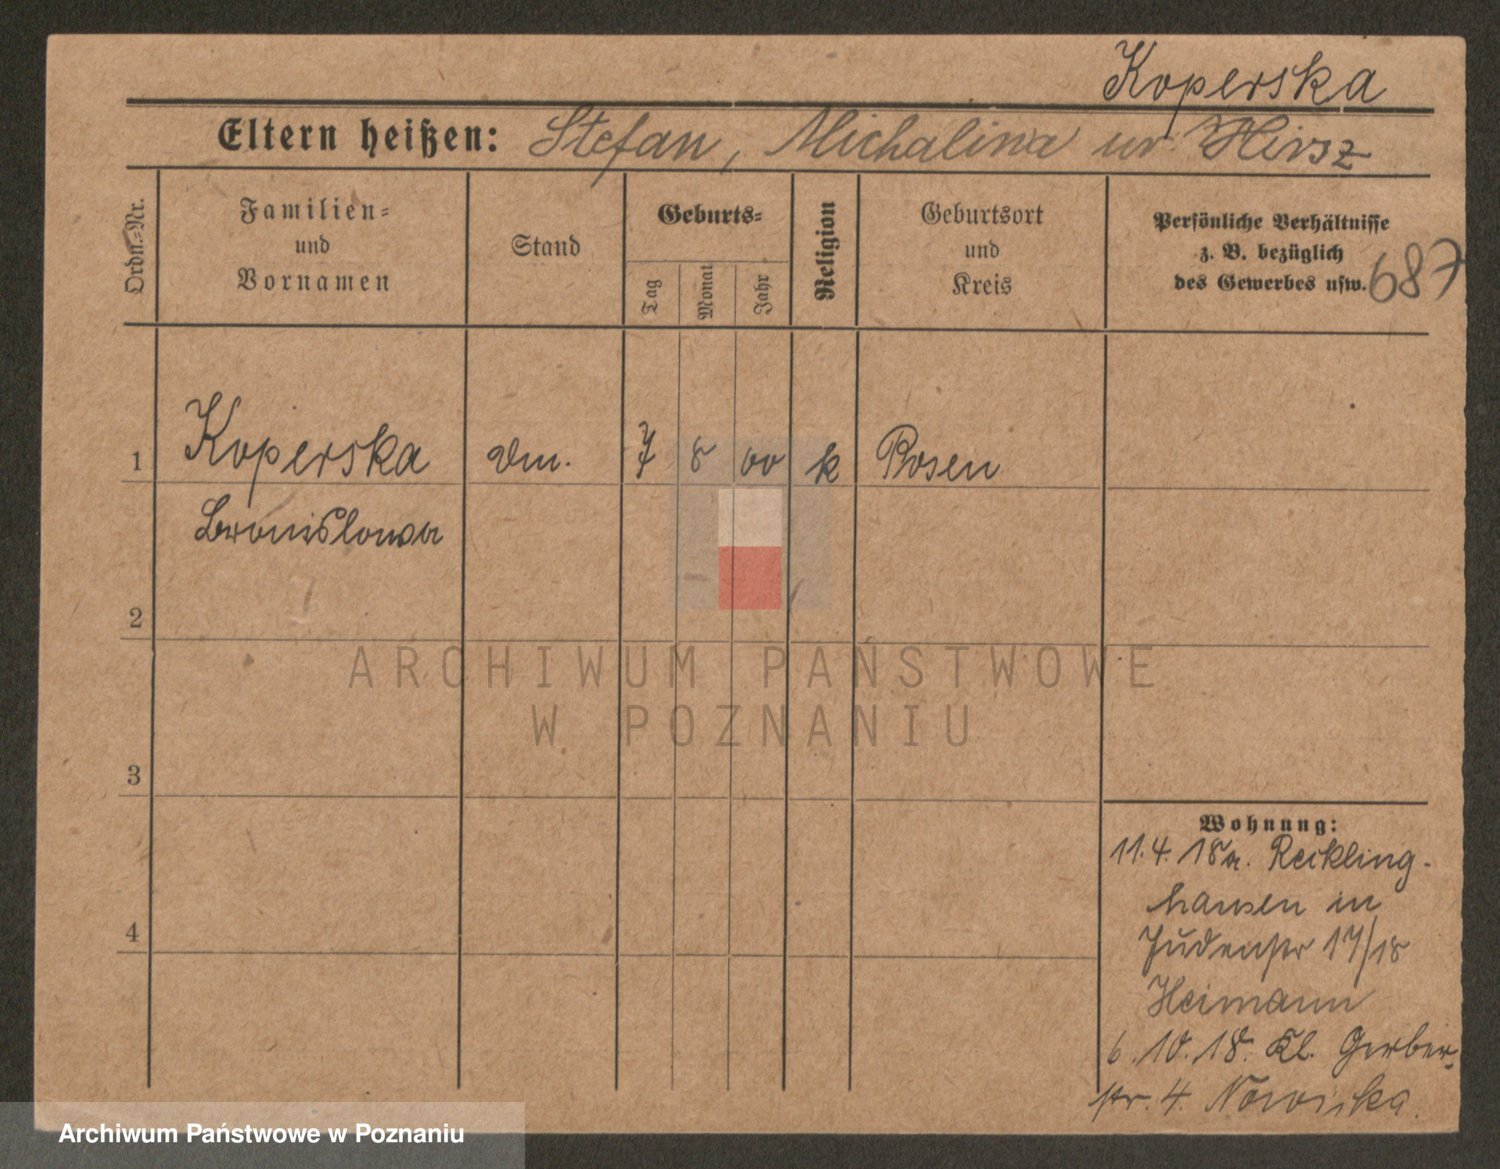 Koperska
Eltern heißen: Stefan, Michalina ur. Hirsz
Ordn.=Nr.
Familien=
und
Vornamen
Stand
Geburts=
Tag
Monat
Jahr
Religion
Geburtsort
und
Kreis
Persönliche Verhältnisse
z. B. bezüglich
des Gewerbes usw.
687
1 Koperska Dm. 7 8 00 k Posen
Bronislowa
2
3
4
Wohnung:
11.4.18 a. Reckling-
hausen in
Judenstr 17/18
Heimann
6.10.18. Kl. Gerber-
str. 4.
ARCHIWUM PAŃSTWOWE
W POZNANIU
Archiwum Państwowe w Poznaniu